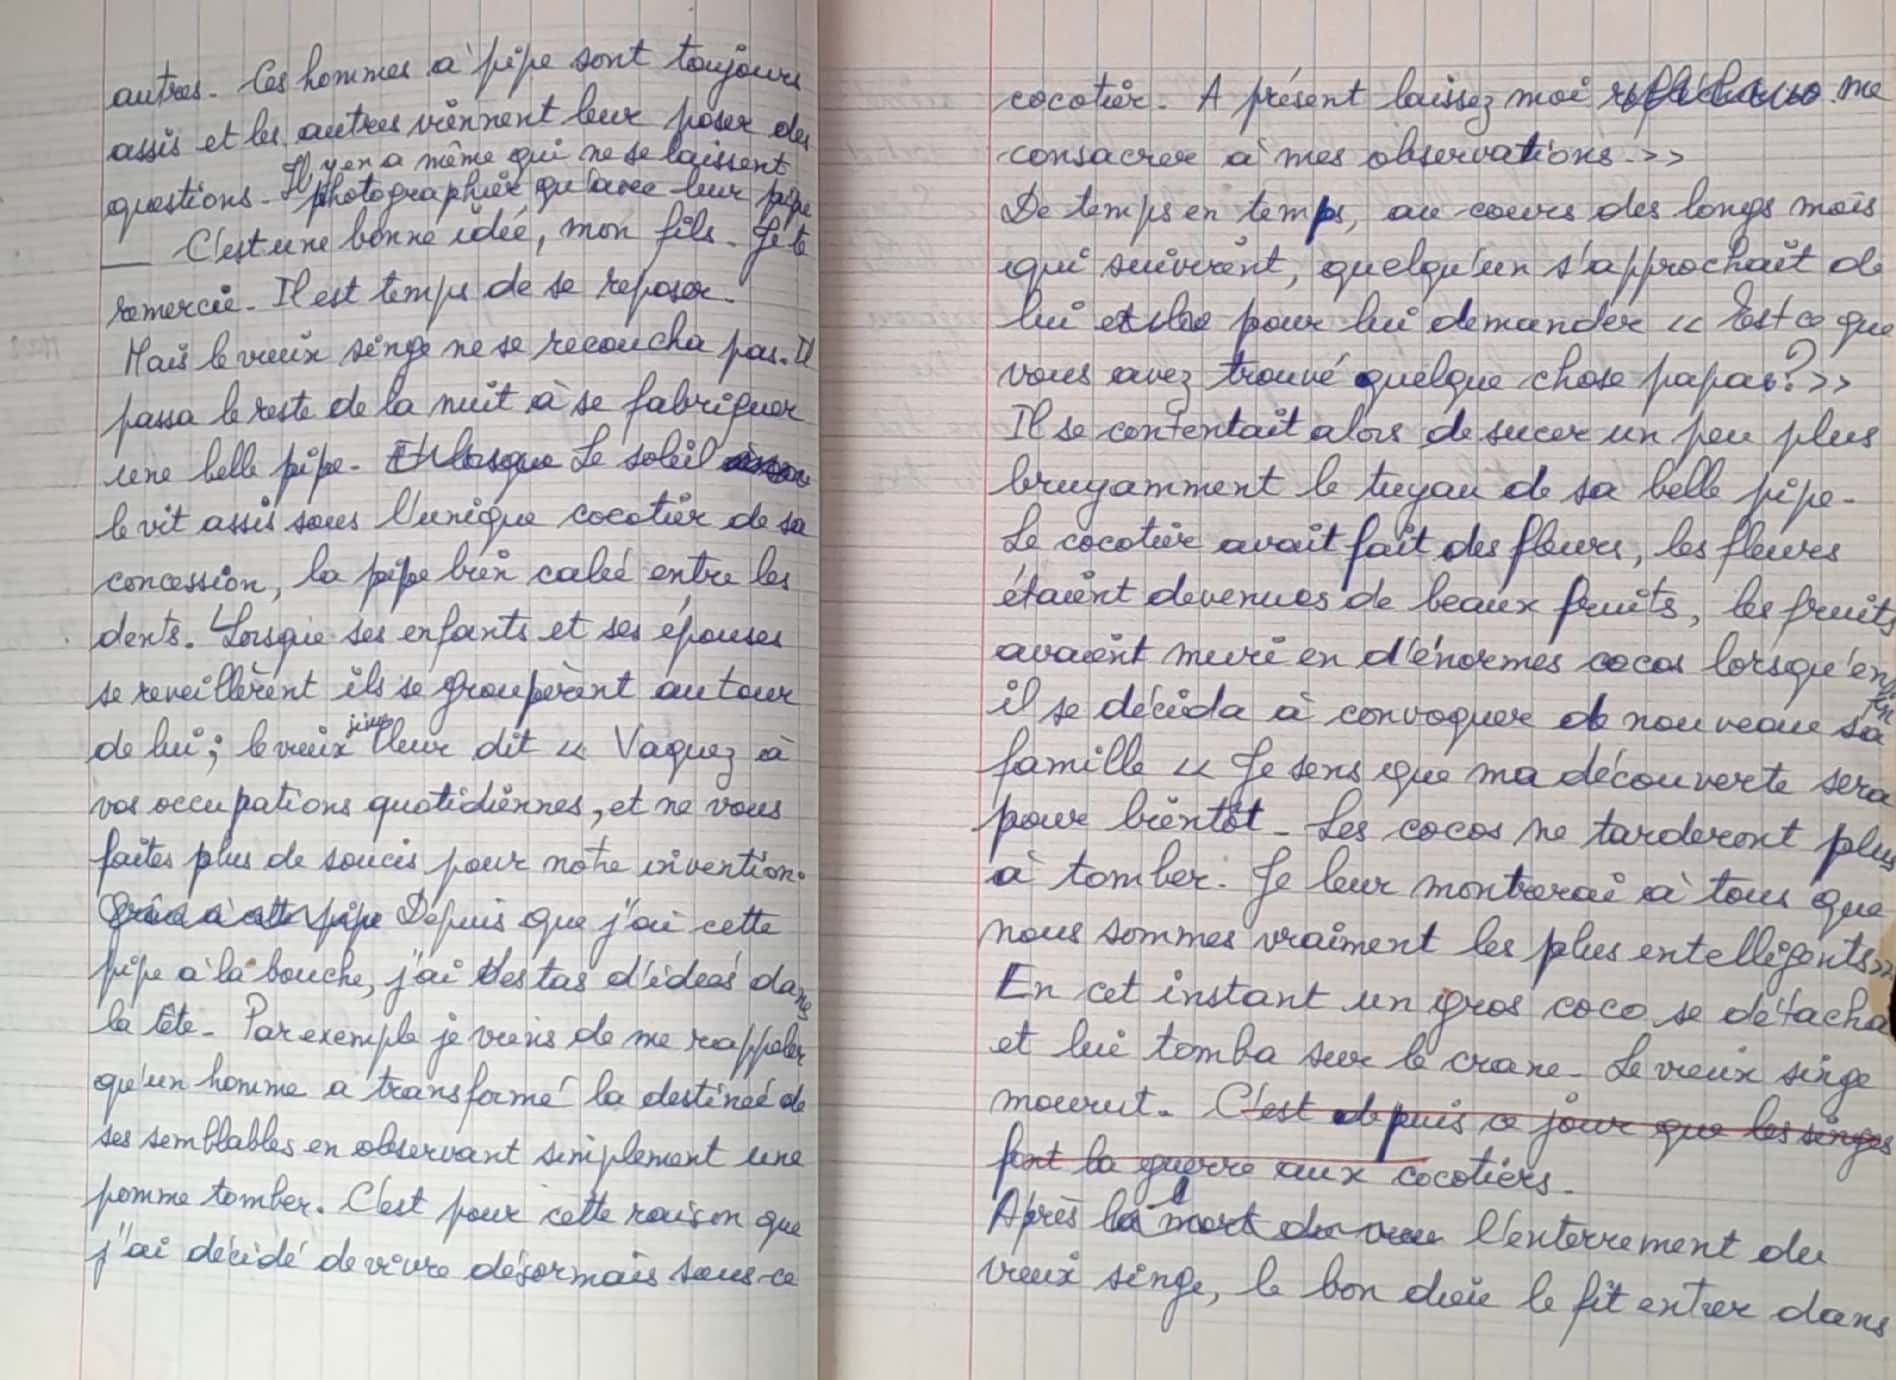 autres. Ces hommes à pipe sont toujours
assis et les autres viennent leur poser des
Il y en a même qui ne se laissent
questions. photographier qu'avec leur pipe
— C'est une bonne idée, mon fils. Je te
remercie. Il est temps de se reposer.
Mais le vieux singe ne se recoucha pas. Il
passa le reste de la nuit à se fabriquer
une belle pipe. Et lorsque Le soleil
le vit assis sous l'unique cocotier de sa
concession, la pipe bien calée entre les
dents. Lorsque ses enfants et ses épouses
se reveillèrent ils se groupèrent autour
de lui; le vieux singe leur dit << Vaquez à
vos occupations quotidiennes, et ne vous
faites plus de soucis pour notre invention.
Grâce à cette pipe Depuis que j'ai cette
pipe à la bouche, j'ai des tas d'idées dans
la tête. Par exemple je viens de me rappeler
qu'un homme a transformé la destinée de
ses semblables en observant simplement une
pomme tomber. C'est pour cette raison que
j'ai décidé de vivre désormais sous ce
cocotier. A présent laissez moi me
consacrer à mes observations. >>
De temps en temps, au cours des longs mois
qui suivirent, quelqu'un s'approchait de
lui pour lui demander << Est ce que
vous avez trouvé quelque chose papa? >>
Il se contentait alors de sucer un peu plus
bruyamment le tuyau de sa belle pipe.
Le cocotier avait fait des fleurs, les fleurs
étaient devenues de beaux fruits, les fruits
avaient muri en d'énormes cocos lorsqu'enfin
il se décida à convoquer de nouveau sa
famille << Je sens que ma découverte sera
pour bientôt. Les cocos ne tarderont plus
à tomber. Je leur montrerai à tous que
nous sommes vraiment les plus entelligents>>
En cet instant un gros coco se détacha
et lui tomba sur le crane. Le vieux singe
mourut. C'est depuis ce jour que les singes
font la guerre aux cocotiers.
Après la mort du vieu l'enterrement du
vieux singe, le bon dieu le fit entrer dans